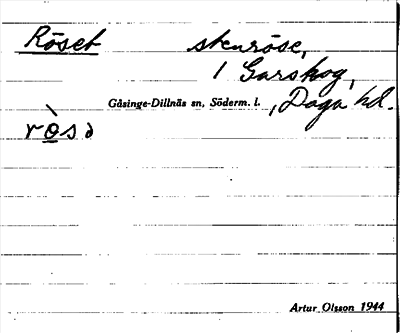 Röset stenröse,
i Garskog,
Gåsinge-Dillnäs sn, Söderm. l., Daga hd.
Artur Olsson 1944